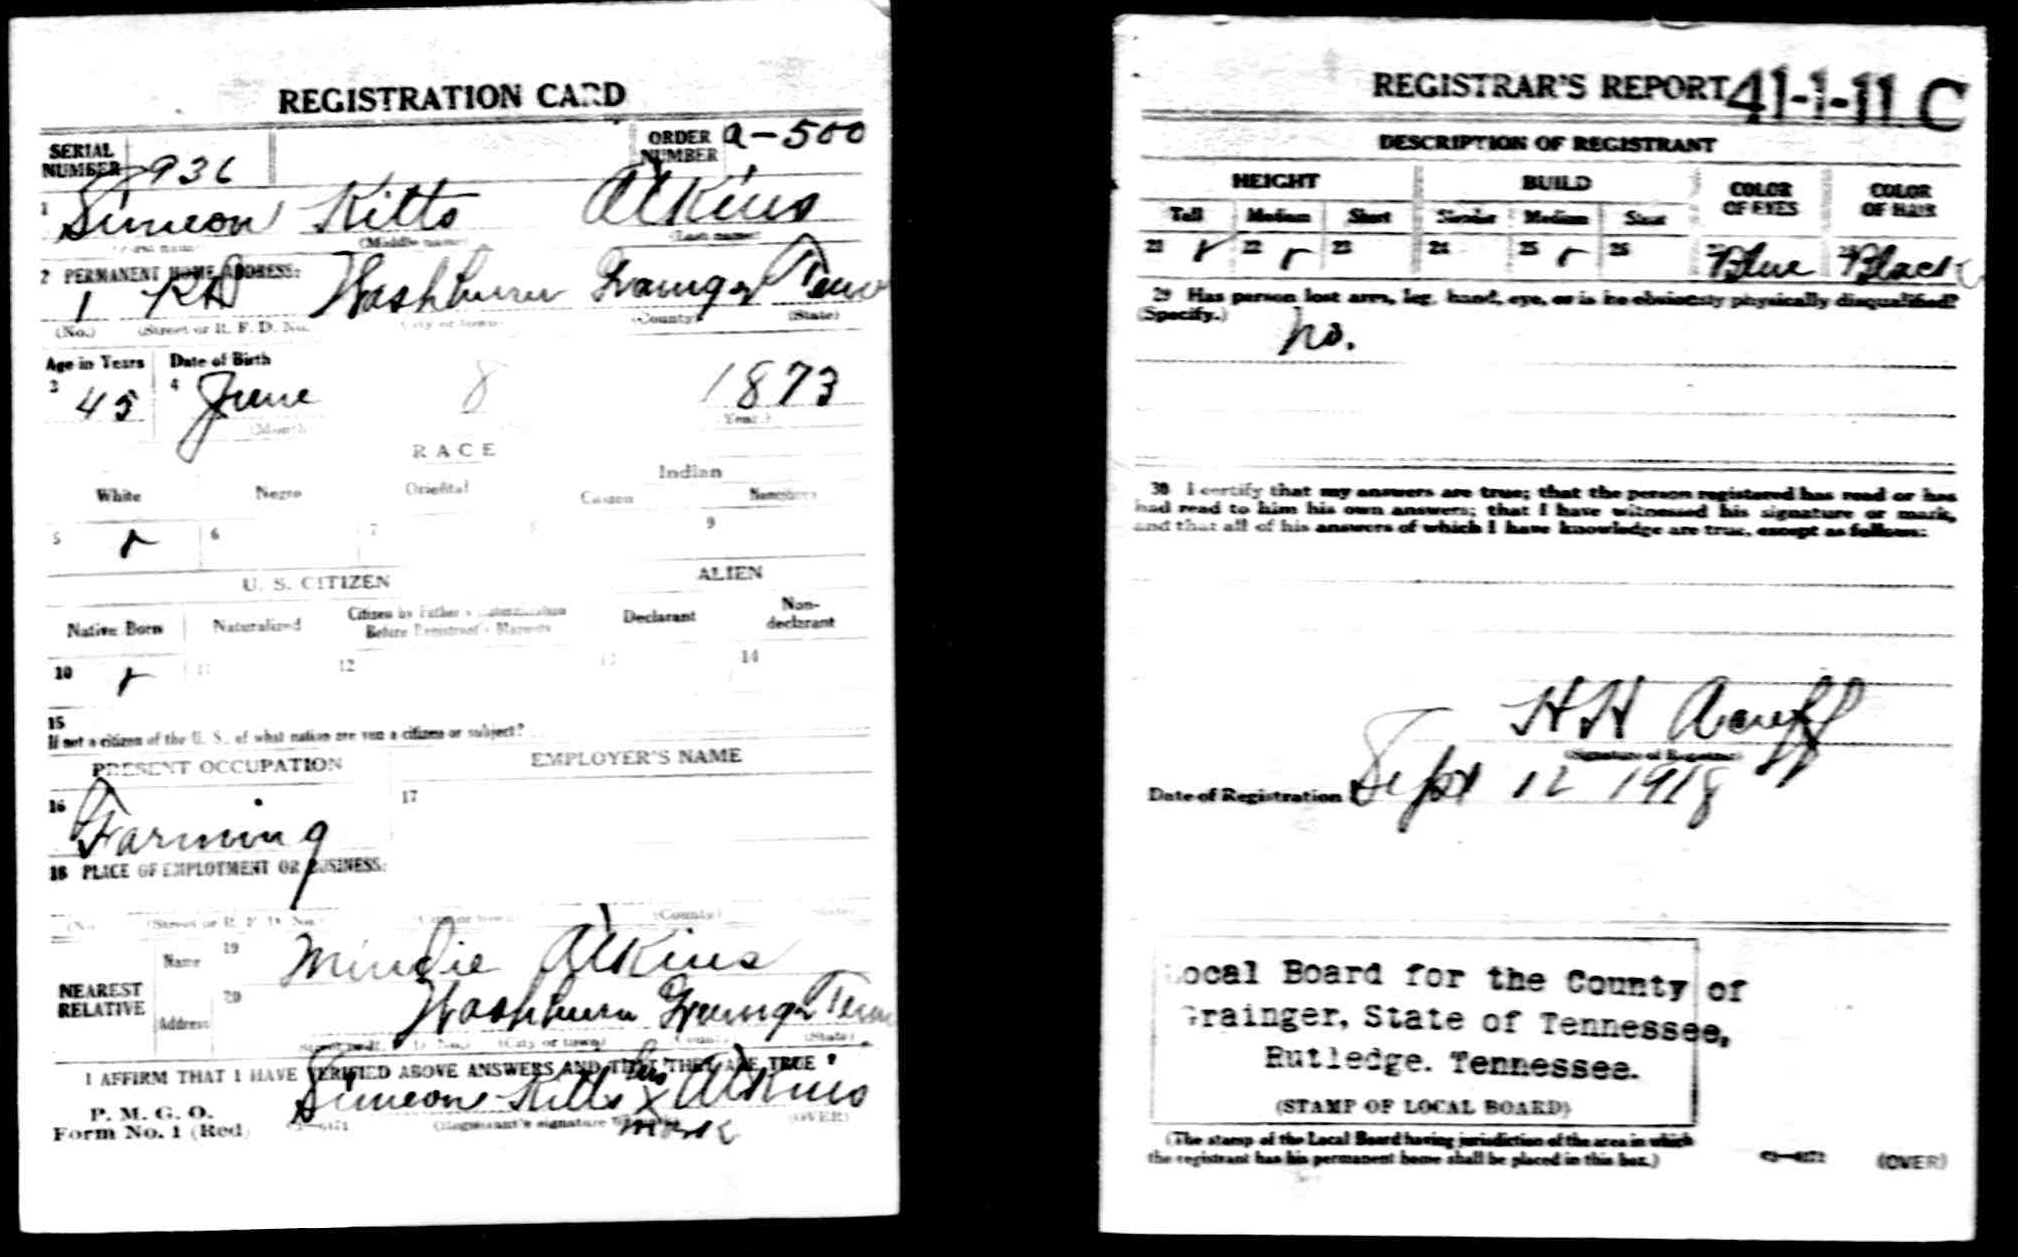 REGISTRATION CARD
SERIAL NUMBER 936 ORDER NUMBER a-500
1 Simeon Kitts Atkins
(Middle name) (Last name)
2 PERMANENT HOME ADDRESS:
1 RD Washburn Grainger Tenn
(No.) (Street or R. F. D. No. (City or town) (County) (State)
Age in Years Date of Birth
3 45 4 June 8 1873
(Month) Year.)
RACE
White Negro Oriental Indian
Citizen Noncitizen
5 ✓ 6 7 8 9
U. S. CITIZEN ALIEN
Native Born Naturalized Citizen by Father's Naturalization Before Registrant's Majority Declarant Non-declarant
10 ✓ 11 12 13 14
15
If not a citizen of the U. S., of what nation are you a citizen or subject?
PRESENT OCCUPATION EMPLOYER'S NAME
16 Farming 17
18 PLACE OF EMPLOYMENT OR BUSINESS:
(No. (Street or R. F. D. No.) (City or town) (County) (State)
NEAREST RELATIVE Name 19 Atkins
Address 20 Washburn Grainger Tenn
(Street or R. F. D. No.) (City or town) (County) (State)
I AFFIRM THAT I HAVE VERIFIED ABOVE ANSWERS AND THAT THEY ARE TRUE
P. M. G. O.
Form No. 1 (Red) Simeon Kitts his X mark Atkins
(Registrant's signature or mark) (OVER)
REGISTRAR'S REPORT 41-1-11 C
DESCRIPTION OF REGISTRANT
HEIGHT BUILD COLOR OF EYES COLOR OF HAIR
Tall Medium Short Slender Medium Stout
21 ✓ 22 ✓ 23 24 25 ✓ 26 27 Blue 28 Black
29 Has person lost arm, leg, hand, eye, or is he obviously physically disqualified?
(Specify.) no.
30 I certify that my answers are true; that the person registered has read or has
had read to him his own answers; that I have witnessed his signature or mark,
and that all of his answers of which I have knowledge are true, except as follows:
H H Acuff
(Signature of Registrar)
Date of Registration Sept 12 1918
Local Board for the County of
Grainger, State of Tennessee,
Rutledge. Tennessee.
(STAMP OF LOCAL BOARD)
(The stamp of the Local Board having jurisdiction of the area in which
the registrant has his permanent home shall be placed in this box.)
(OVER)